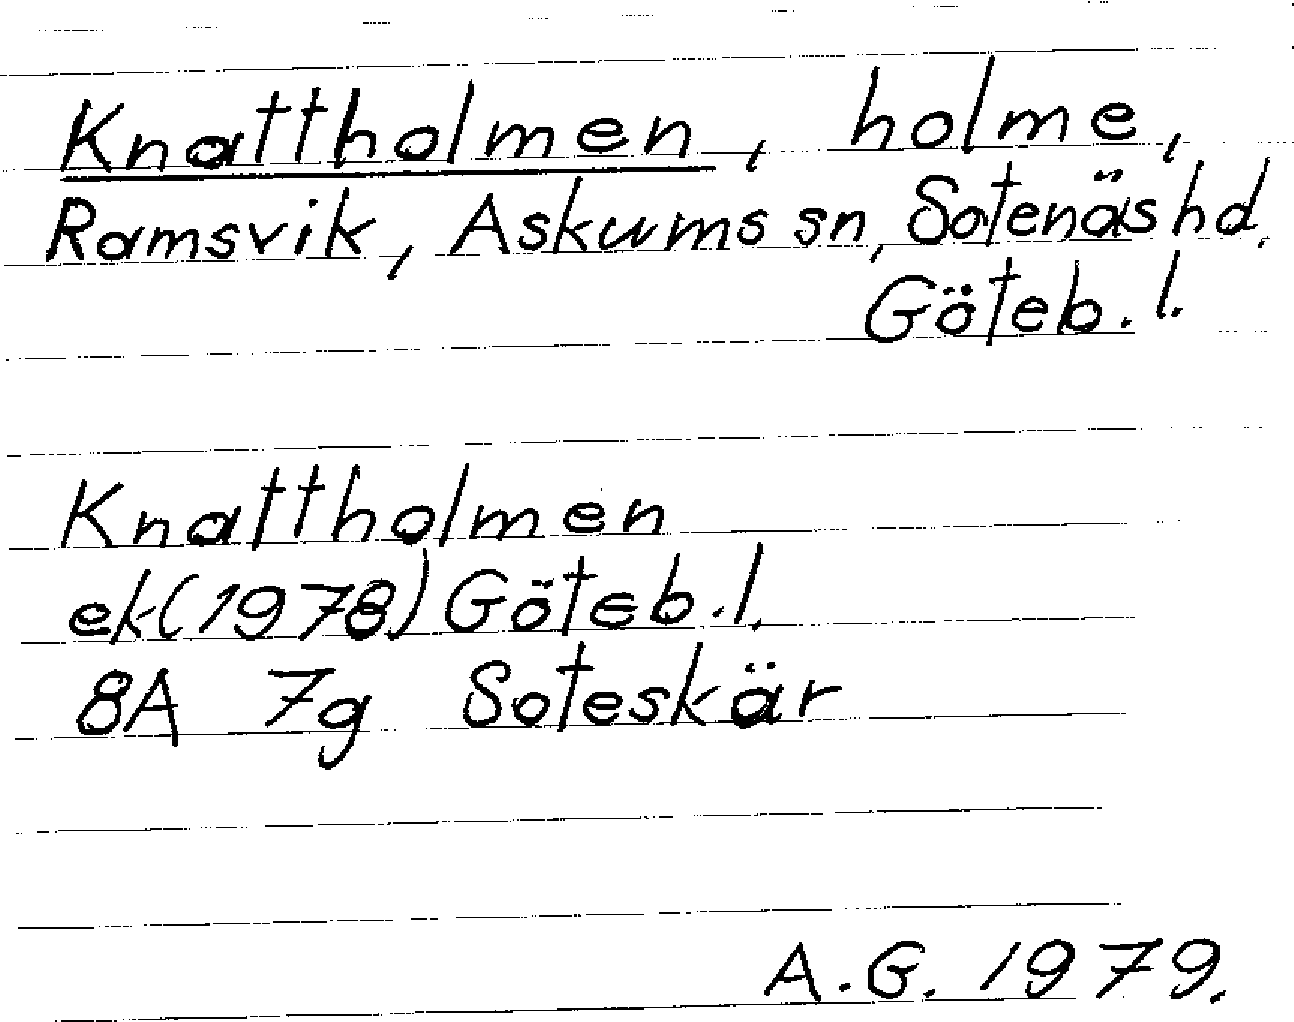 Knattholmen, holme,
Ramsvik, Askums sn, Sotenäs hd.
Göteb. l.
Knattholmen
ek(1978) Göteb. l.
8A 7g Soteskär
A.G. 1979.